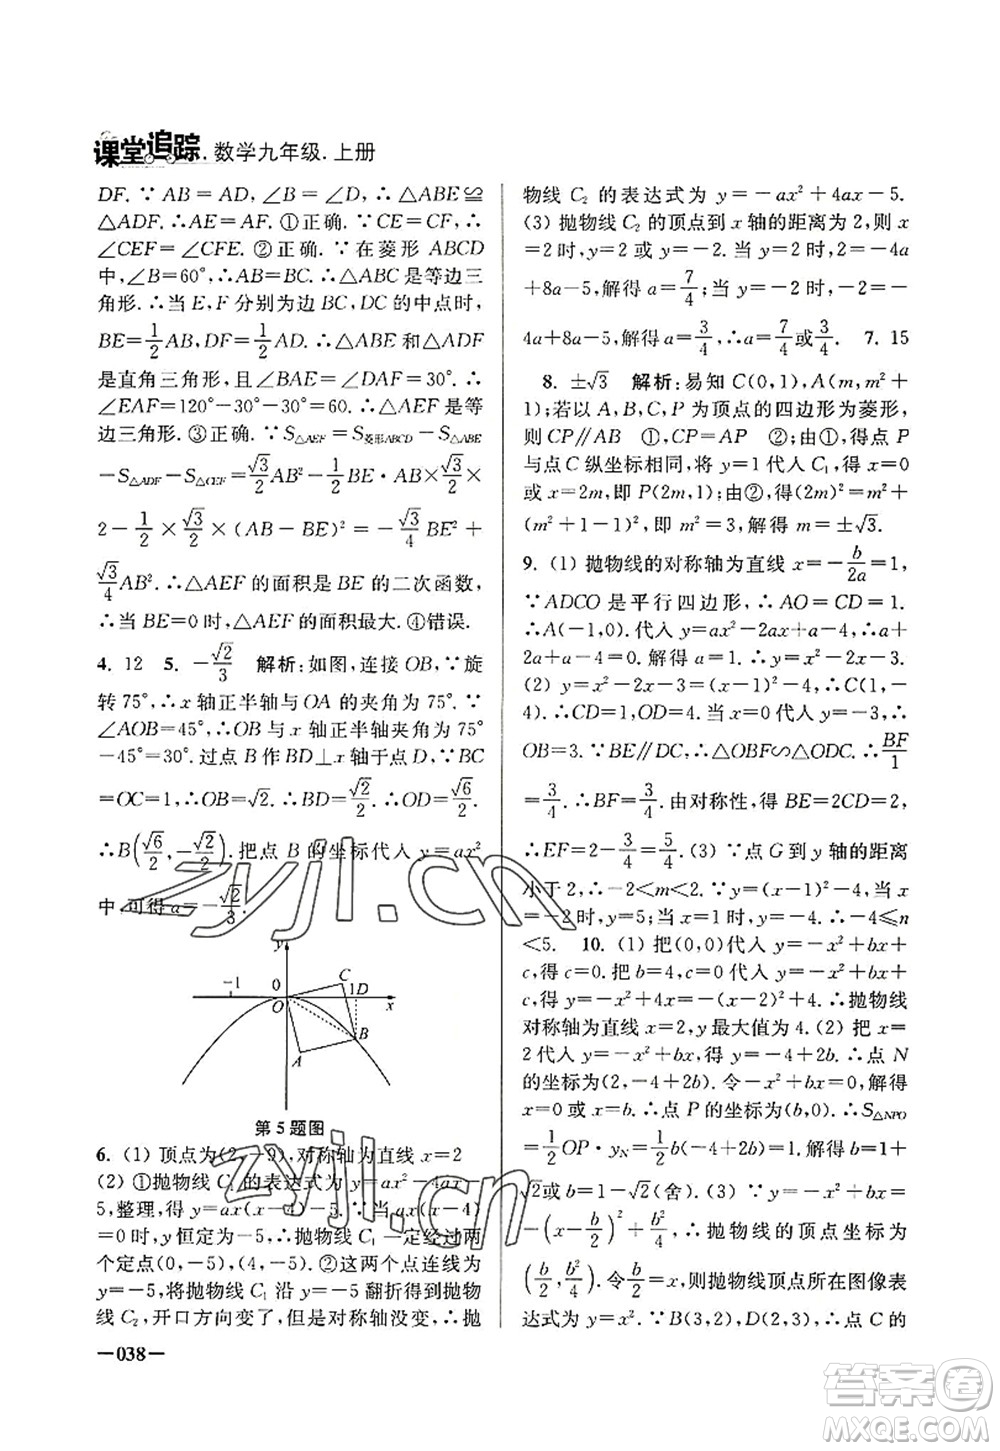 课堂追踪.数学九年级.上册
DF. ∵ AB = AD, ∠B = ∠D, ∴ △ABE≌
△ADF. ∴AE=AF. ①正确. ∵CE=CF, ∴
∠CEF = ∠CFE. ②正确. ∵在菱形 ABCD
中, ∠B=60°, ∴AB=BC. ∴△ABC是等边三
角形. ∴当 E, F 分别为边 BC, DC 的中点时,
BE=1/2AB, DF=1/2AB, ∴△ABE 和△ADF
是直角三角形, 且∠BAE=∠DAF=30°. ∴
∠EAF=120°-30°-30°=60. ∴△AEF 是等
边三角形. ③正确. ∵S△AEF=S菱形ABCD-S△ABE
-S△ADF-S△CEF=√3/2AB²-1/2BE·AB×√3/2×
2-1/2×√3/2×(AB-BE)²=-√3/4BE²+
√3/4AB². ∴△AEF 的面积是 BE 的二次函数,
∴当 BE=0时, △AEF 的面积最大. ④错误.
4. 12 5. -√2/3 解析:如图, 连接 OB, ∵旋
转 75°, ∴x 轴正半轴与 OA 的夹角为 75°. ∵
∠AOB=45°, ∴OB 与 x 轴正半轴夹角为 75°
-45°=30°. 过点 B 作BD⊥x 轴于点 D. ∵BC
=OC=1, ∴OB=√2. ∴BD=√2/2, OD=√6/2.
∴B(√6/2, -√2/2). 把点 B 的坐标代入 y=ax²
中, 可得 a=-√2/3.
y
-1 0 C 1D
O x
B
A
第 5 题图
6. (1) 顶点为(2, -9), 对称轴为直线 x=2
(2) ①抛物线 C₁ 的表达式为 y=ax²-4ax-
5, 整理, 得 y=ax(x-4)-5. ∵当 ax(x-4)
=0时, y恒定为-5; ∴抛物线 C₁ 一定经过两
个定点(0, -5), (4, -5). ②这两个点连线为
y=-5, 将抛物线 C₁ 沿 y=-5 翻折得到抛物
线 C₂, 开口方向变了, 但是对称轴没变, ∴抛
物线 C₂ 的表达式为 y=-ax²+4ax-5.
(3) 抛物线 C₂ 的顶点到 x 轴的距离为 2, 则 x
=2时, y=2 或 y=-2. 当 y=2时, 2=-4a
+8a-5, 解得 a=7/4; 当 y=-2 时, -2=-
4a+8a-5, 解得 a=3/4, ∴a=7/4或3/4. 7. 15
8. ±√3 解析:易知 C(0, 1), A(m, m²+
1); 若以 A, B, C, P 为顶点的四边形为菱形,
则 CP∥AB ①, CP=AP ②; 由①, 得点 P
与点 C 纵坐标相同, 将 y=1代入 C₁, 得 x=0
或 x=2m, 即 P(2m, 1); 由②, 得(2m)²=m²+
(m²+1-1)², 即 m²=3, 解得 m=±√3.
9. (1) 抛物线的对称轴为直线 x=-b/2a=1,
∵ADCO 是平行四边形, ∴AO=CD=1.
∴A(-1, 0). 代入 y=ax²-2ax-4, 得 a+
2a-4=0. 解得 a=4/3. ∴y=4/3x²-8/3x-4.
(2) 当 x=0时, y=-4. ∴C(0, -4), D(1,
-4). ∴CD=1, OD=4. 当 x=0时, y=-3, ∴
OB=3. ∵BE∥DC, ∴△OBF∽△ODC. ∴BF/1
=3/4. ∴BF=3/4. 由对称性, 得 BE=2CD=2,
∴EF=2-3/4=5/4. (3) ∵点 G 到 y 轴的距离
小于 2, ∴-2<m<2. ∵y=(x-1)²-4, 当
x=-2时, y=5; 当 x=1时, y=-4, ∴-4≤n
<5. 10. (1) 把(0, 0)代入 y=-x²+bx+
c, 得 c=0. 再把(4, 0)代入 y=-x²+bx, 得 b
=4. ∴y=-x²+4x=-(x-2)²+4. ∴抛物线
对称轴为直线 x=2, y 最大值为 4. (2) 把 x=
2代入 y=-x²+bx, 得 y=-4+2b. ∴点 N
的坐标为(2, -4+2b). 令-x²+bx=0, 得 x=
0 或 x=b. ∴点 P 的坐标为(b, 0). ∴S△NPO
=1/2OP·yN=1/2b(-4+2b)=1. 解得b=1+
√2或 b=1-√2(舍). (3) ∵y=-x²+bx=
-(x-b/2)²+b²/4, ∴抛物线的顶点坐标为
(b/2, b²/4). 令b/2=x, 则抛物线顶点所在图像表
达式为 y=x². ∵B(2, 3), D(2, 3), ∴点 C 的
—038—
zyjl.cn
zyjl.cn
答案圈
MXQE.COM